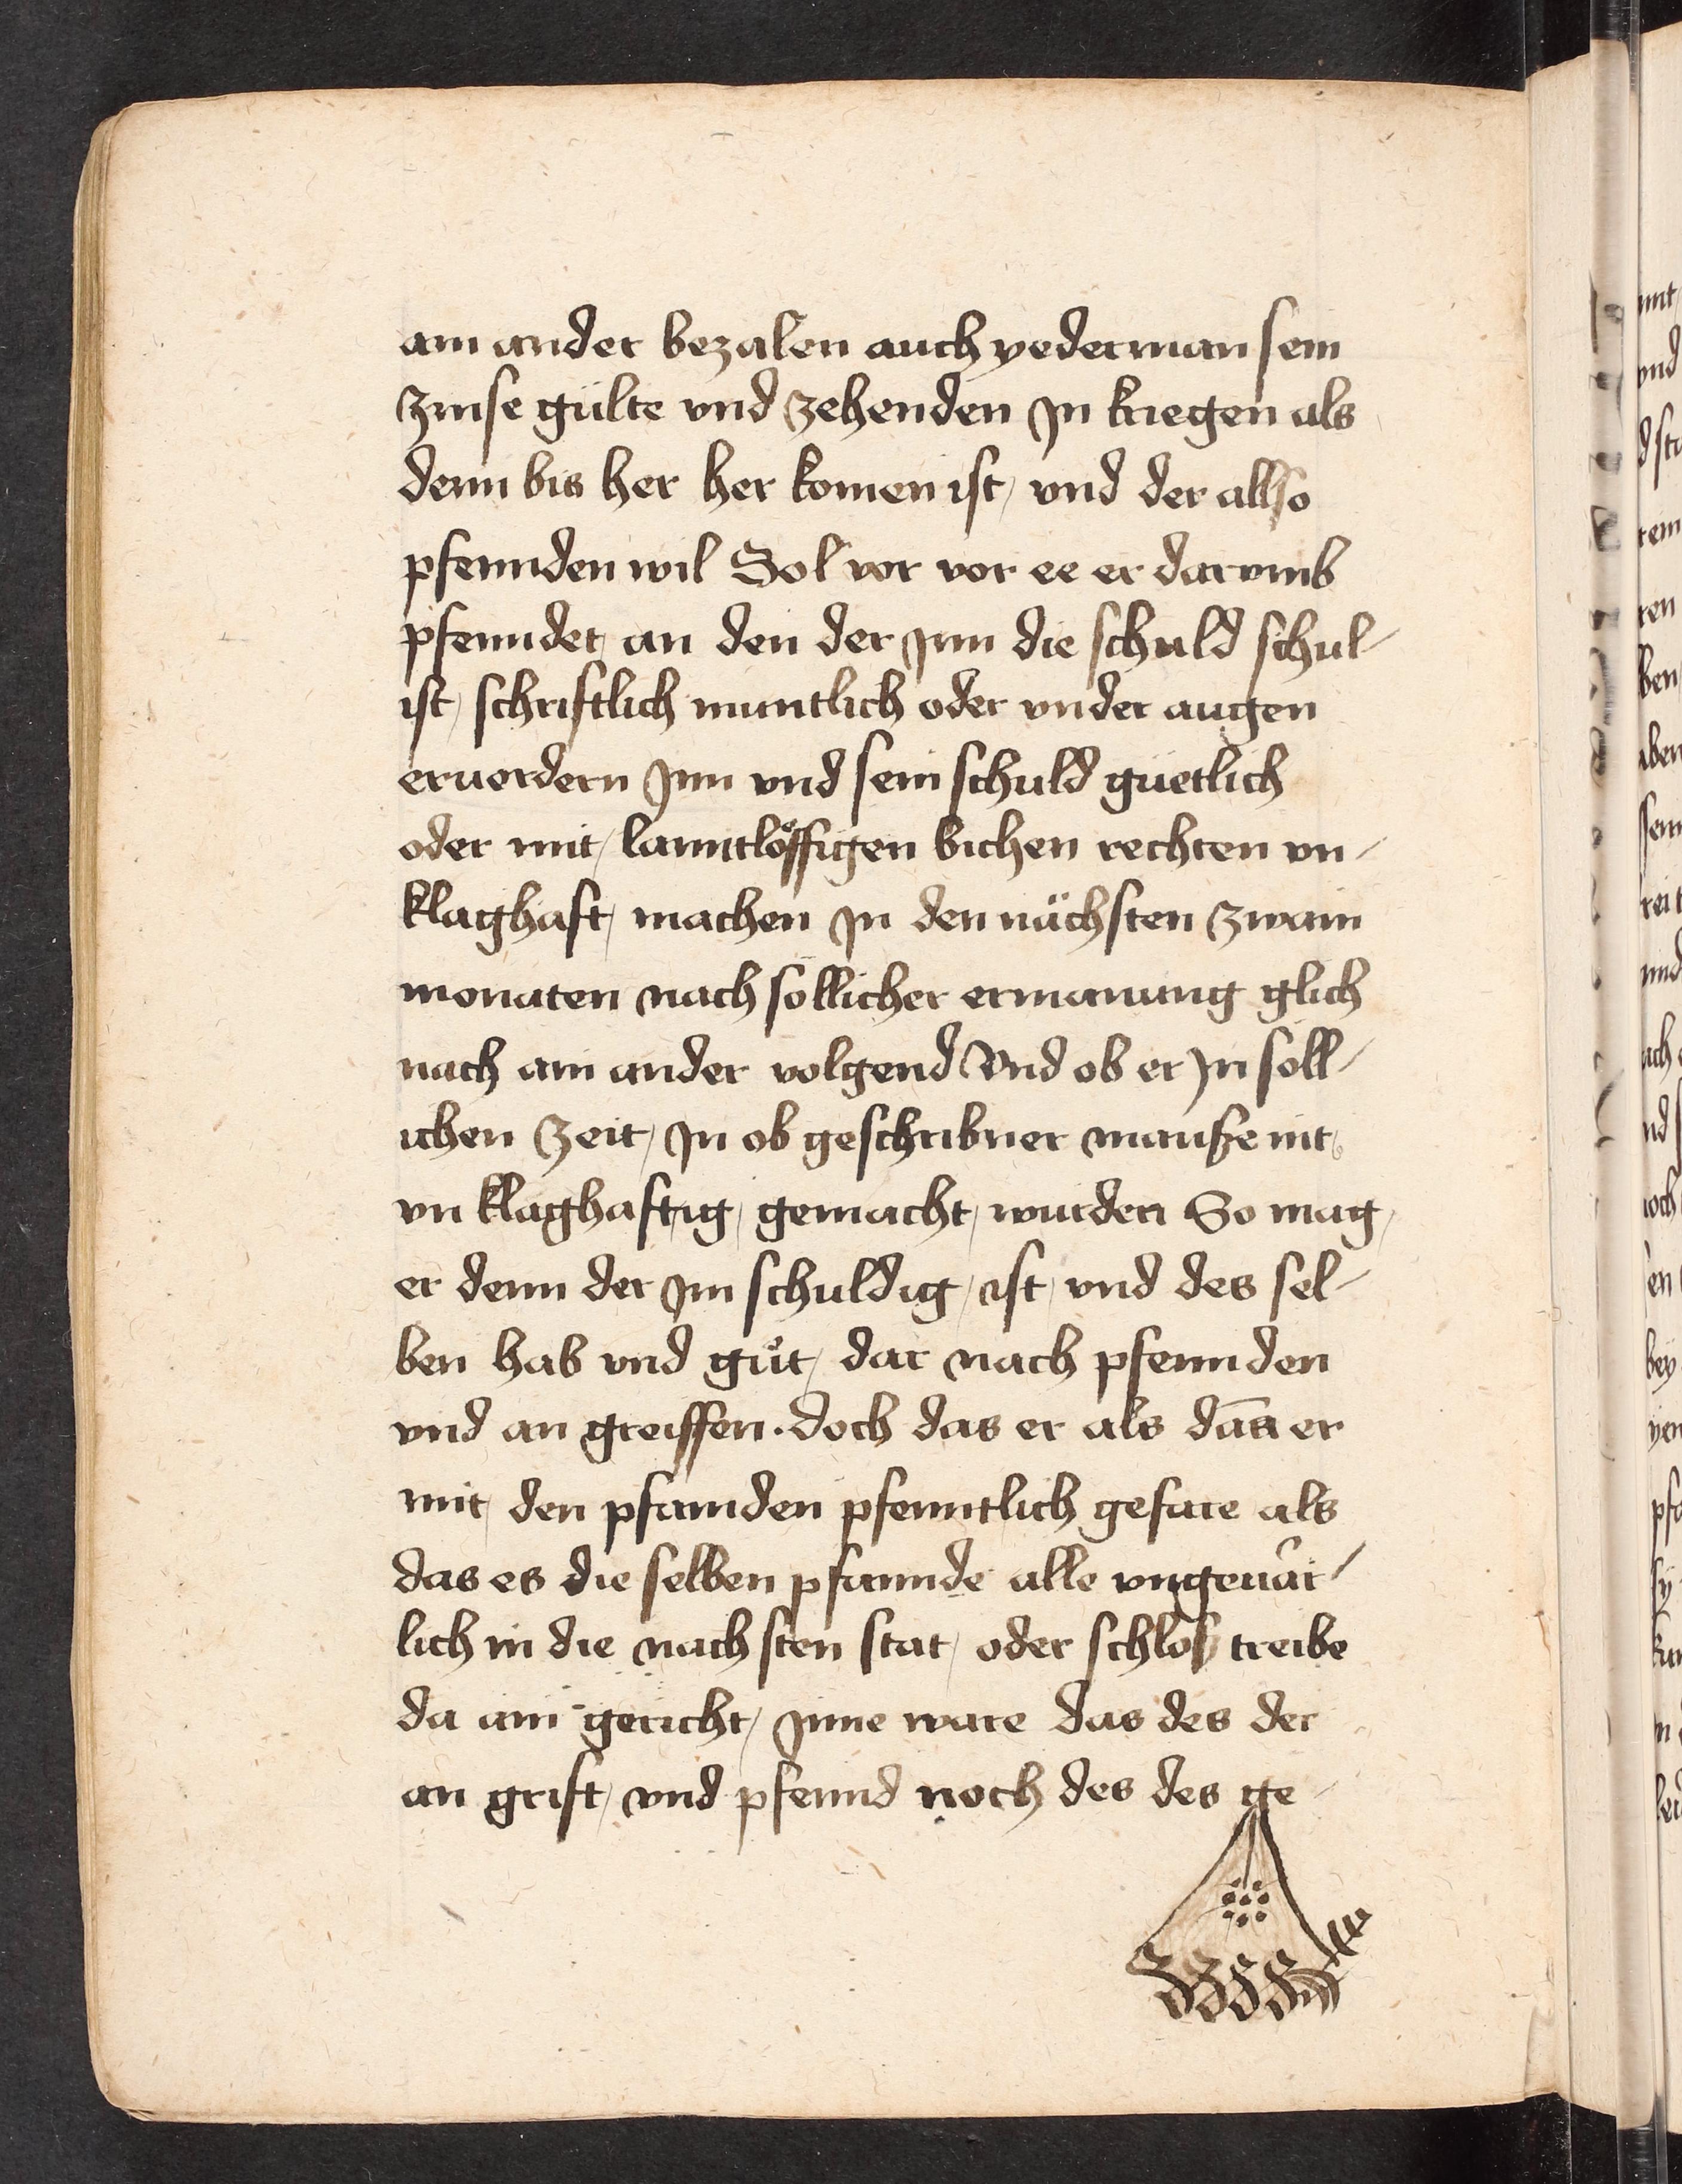 ain ander bezalen auch yederman sein
zinse gülte vnd zehenden In kriegen als
denn bis her her komen ist / vnd der allso
pfennden wil Sol vor vor ee er darvmb
pfenndet an den der Jm die schuld schul-
ist / schriftlich muntlich oder vnder augen
eruordern Jm vnd sein schuld guetlich
oder mit / lanntlöffigen bichen rechten vn-
klaghaft / machen In den nächsten zwain
monaten nach sollicher ermanung glich
nach ain ander volgend Vnd ob er In soll-
ichen zeit / In ob geschribner maußе nit
vn klaghaftig / gemacht / wurden So mag /
er denn der Im schuldig / ist / vnd des sel-
ben hab vnd gůt / dar nach pfennden
vnd an greiffen. doch das er als dan̄ er
mit den pfannden pfenntlich gefare als
das es die selben pfannde alle vngeuar-
lich in die nachsten stat / oder schlos treibe
da ain gericht / Inne ware das des der
an grift / vnd pfennd noch des des ge-